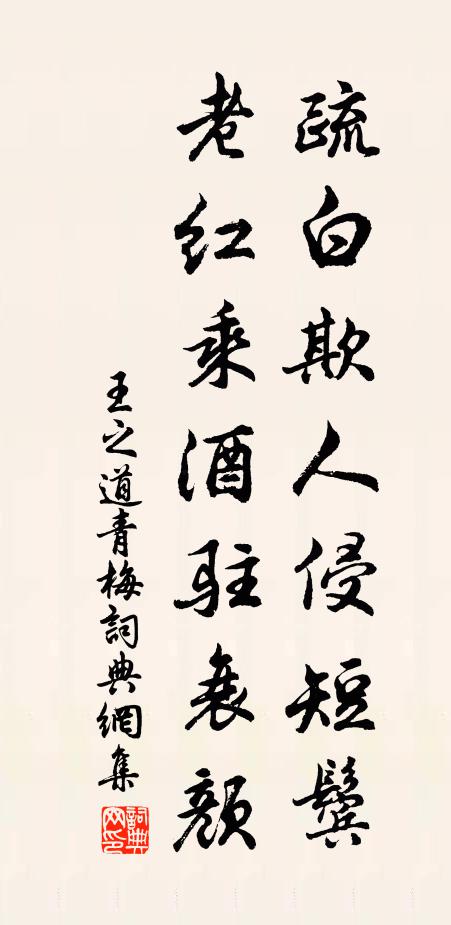 疏白欺人侵短鬓
老红乘酒驻衰颜
王之道青梅詞典網集
詞典网印